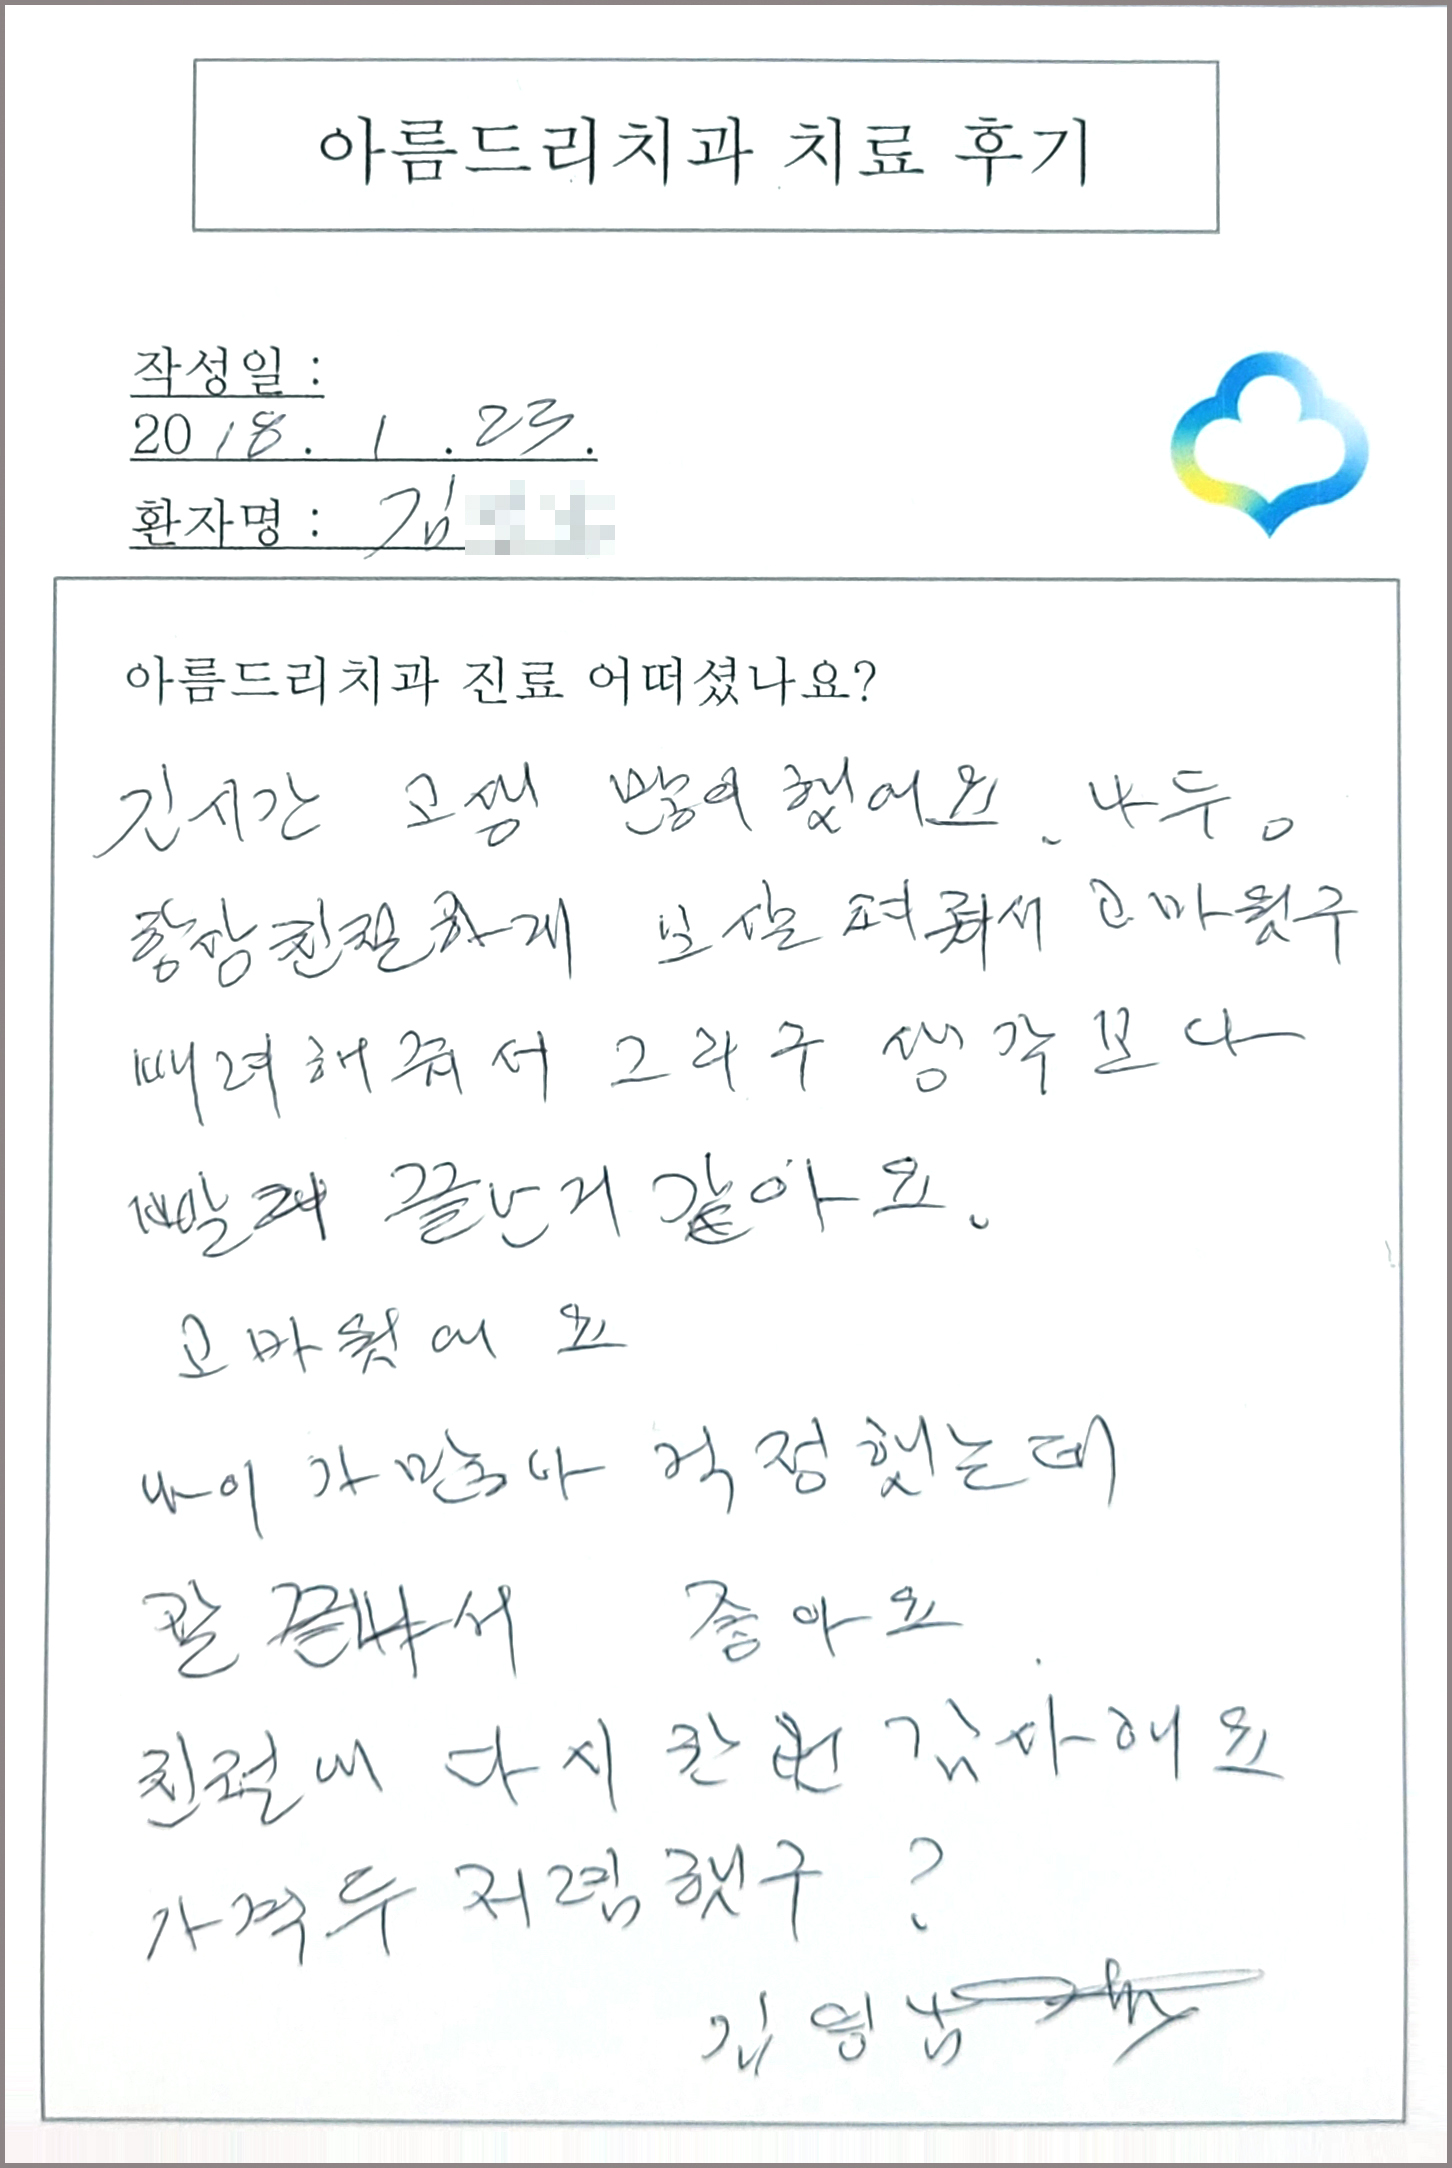 아름드리치과 치료 후기
작성일 :
2018. 1. 23.
환자명 : 김
아름드리치과 진료 어떠셨나요?
긴시간 고생 많이 했어요. 나두.
항상친절하게 보살펴줘서 고마웠구
배려해줘서 그리구 생각보다
빨리 끝난거 같아요.
고마웠어요
나이가 많아 걱정했는데
잘 끝나서 좋아요.
친절내 다시 한번 감사해요
가격두 저렴했구?
김영남